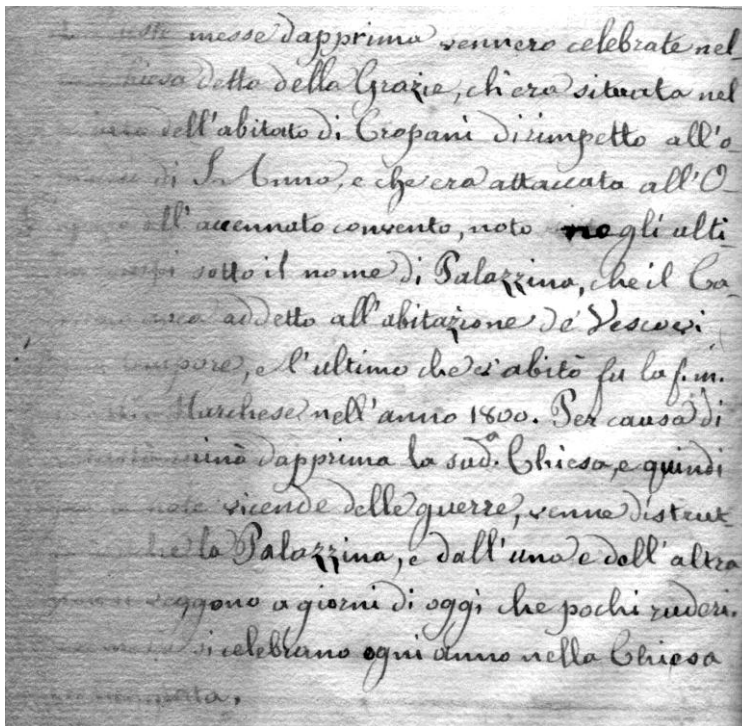 messe dapprima vennero celebrate nel-
detta delle Grazie, ch'era situata nel
dell'abitato di Cropani dirimpetto all'o-
di S. Anna, e che era attaccata all'O-
dell'accennato convento, noto negli ulti-
sotto il nome di Palazzina, che il Co-
addetto all'abitazione de' Vescovi
tempore, e l'ultimo che v'abitò fu la f. m.
Marchese nell'anno 1800. Per causa di
dapprima la sud.a Chiesa, e quindi
note vicende delle guerre, venne distrut-
la Palazzina, e dall'una e dell'altra
veggono a giorni di oggi che pochi ruderi.
si celebrano ogni anno nella Chiesa